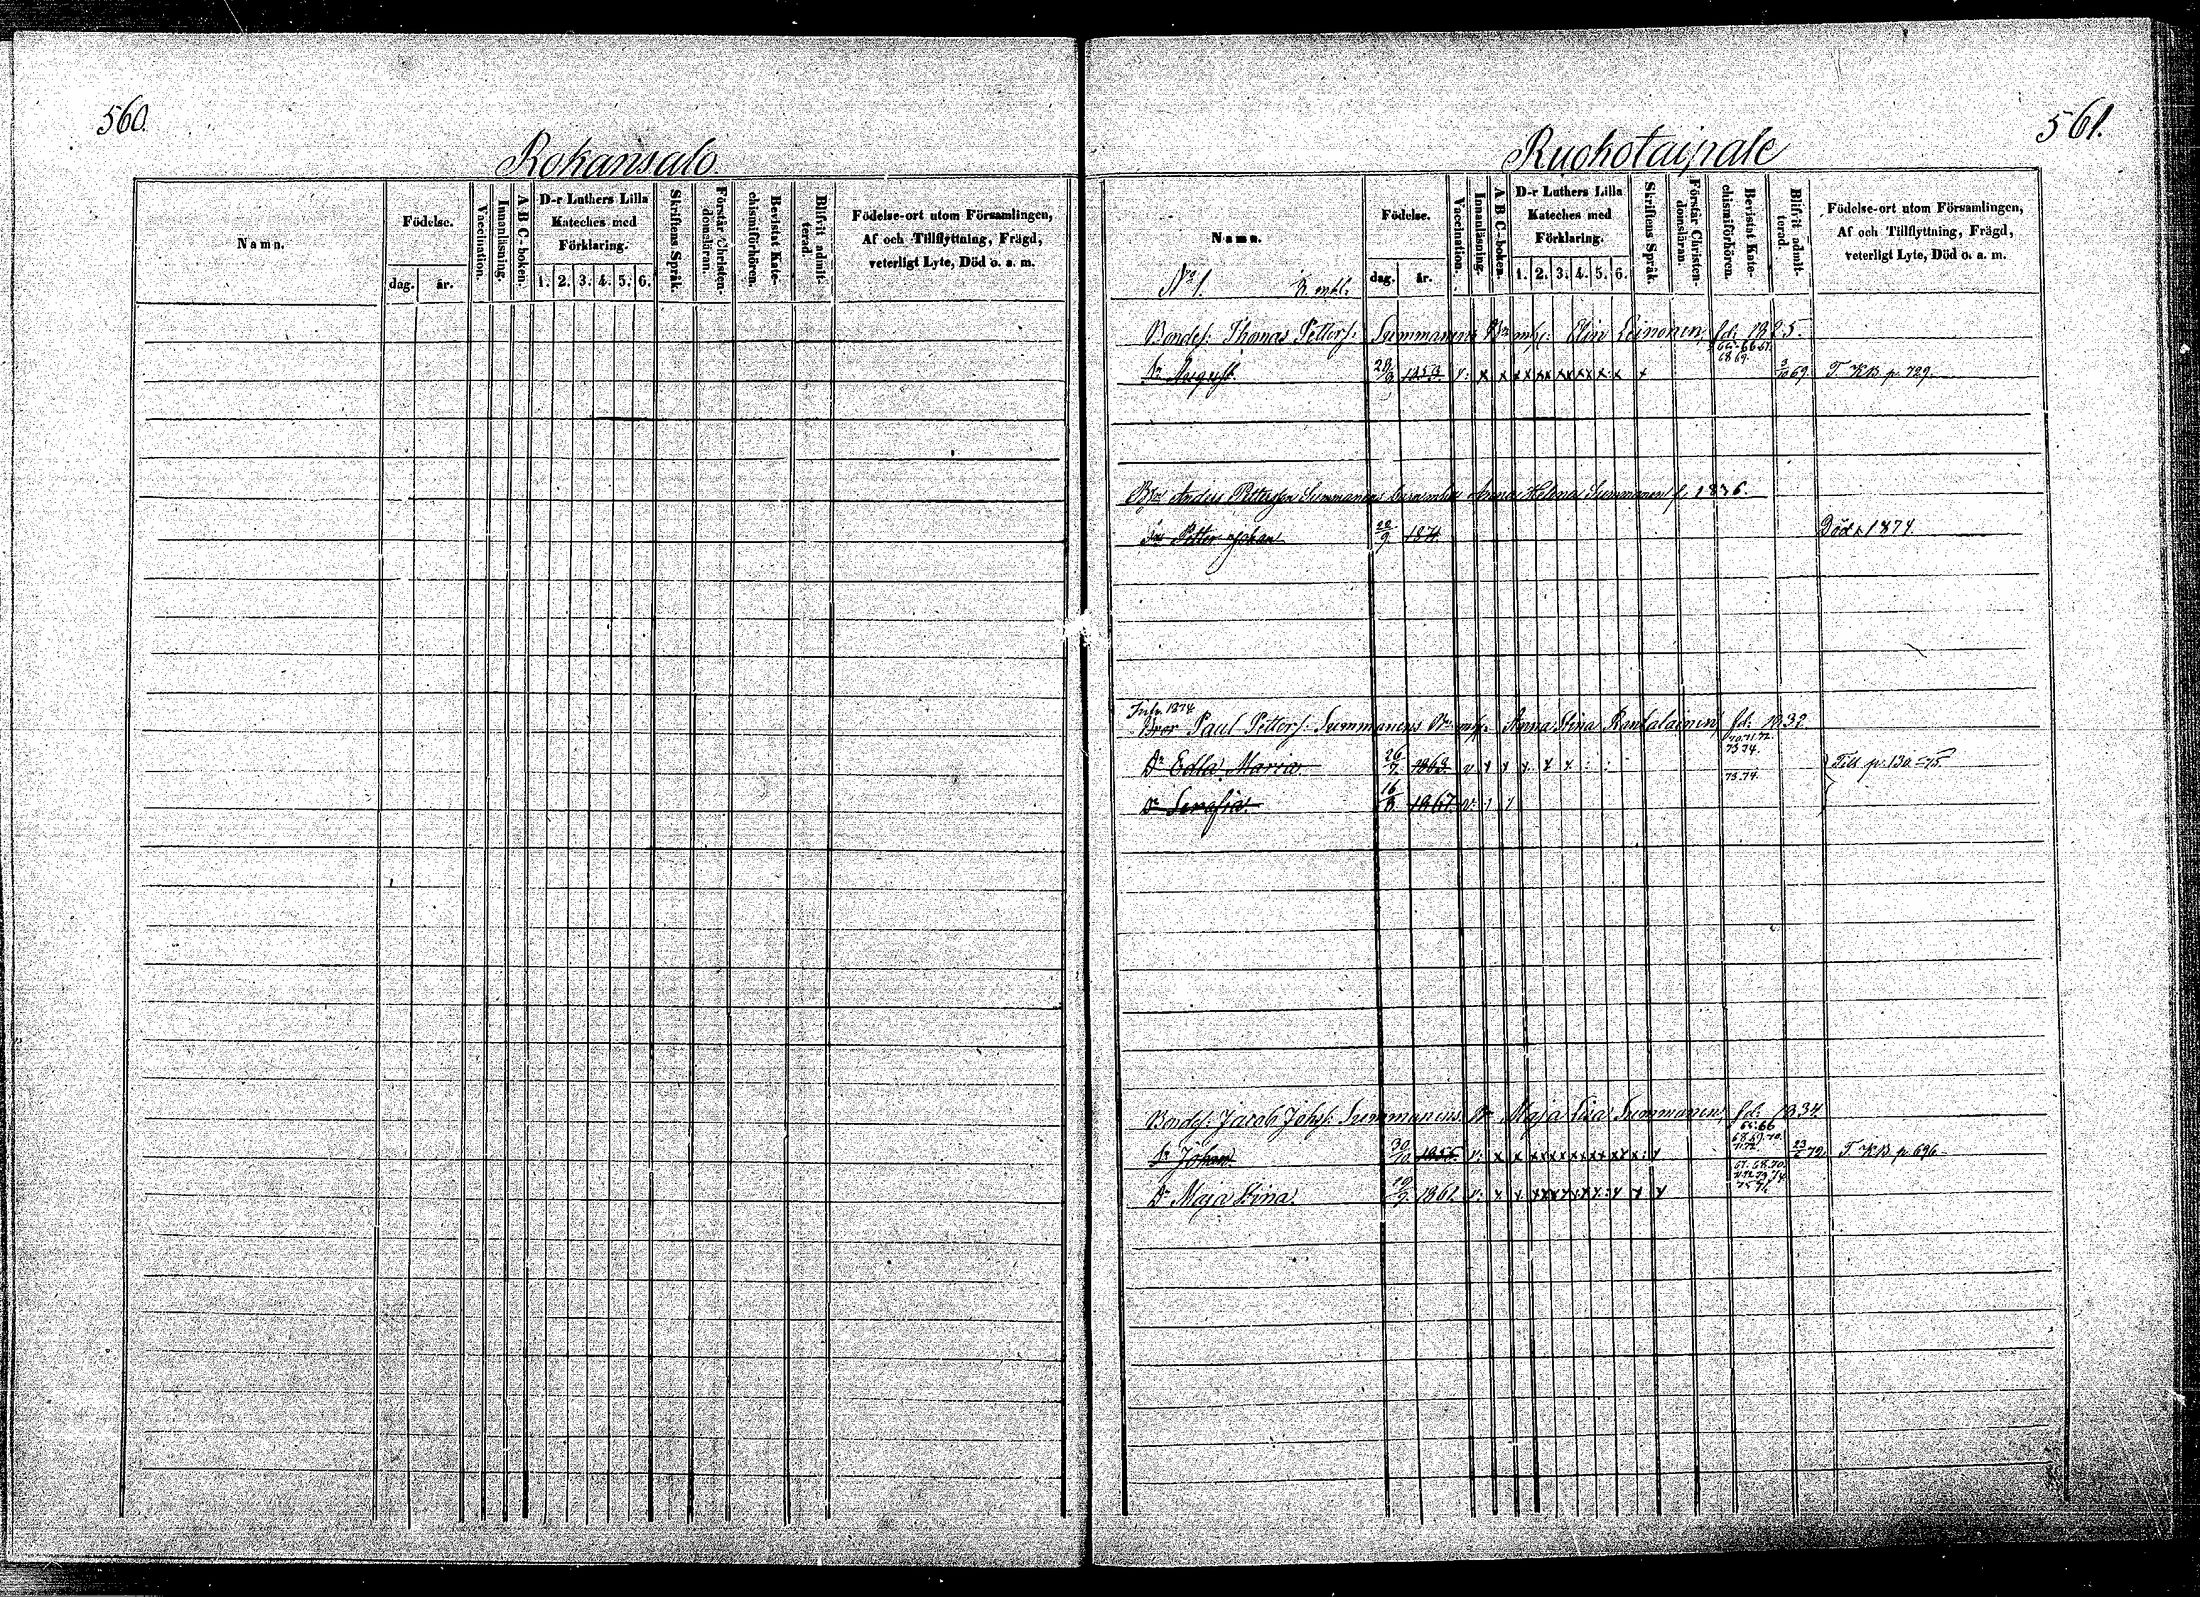 560.
Rokansalo.
Namn.
Födelse.
dag.
år.
Vaccination.
Innanläsning.
A B C-boken.
D-r Luthers Lilla
Kateches med
Förklaring.
1. 2. 3. 4. 5. 6.
Skriftens Språk.
Förstår Christen-
domsläran.
Bevistat Kate-
chismiförhören.
Blifvit admit-
terad.
Födelse-ort utom Församlingen,
Af och Tillflyttning, Frägd,
veterligt Lyte, Död o. a. m.
561.
Ruokotaipale
Namn.
Födelse.
dag.
år.
Vaccination.
Innanläsning.
A B C-boken.
D-r Luthers Lilla
Kateches med
Förklaring.
1. 2. 3. 4. 5. 6.
Skriftens Språk.
Förstår Christen-
domsläran.
Bevistat Kate-
chismiförhören.
Blifvit admit-
terad.
Födelse-ort utom Församlingen,
Af och Tillflyttning, Frägd,
veterligt Lyte, Död o. a. m.
No 1.
Bondes: Thomas Petters: Summanens Bn m/h: Elin Leinonen, fd: 1825.
Sn August. 1853. 69. T. KB. p. 729.
Anders Pettersson Summanens barn m/h Anna Helena Summanen f. 1836.
Son Petter Johan 22/9 1874. Död 1874.
1874
Bror Paul Petters: Summanens Bn m/h. Anna Stina Rantalainen, fd: 1832
70.71.72.
73 74.
Dr Edla Maria. 26/7 1863. Till p. 130.-75
73.74.
Dr Serafia. 16/8 1867.
Bondes: Jacob Johs: Summanens Bn Maja Lisa Summanen, fd: 1834
65.66
68.69.70.
71.72
Sn Johan. 30/10 23/6 72. T. KB. p. 696
Dr Maja Stina. 1861